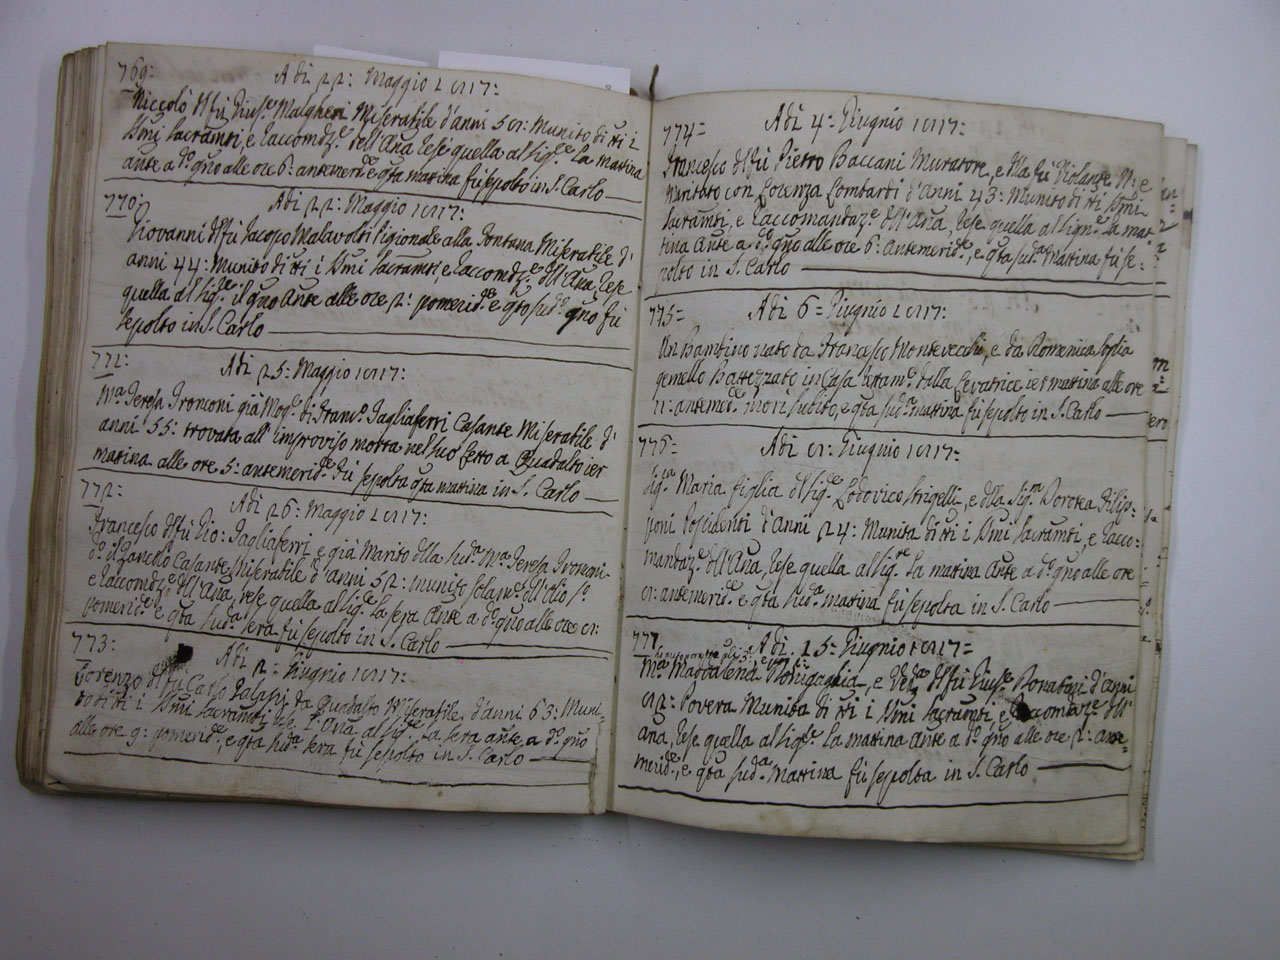 769:
Adi 22: Maggio 1817:
Niccolò d̅l fù Giuse. Malgheri Miserabile d'anni 58: Munito di t̅ti i
S̅s̅mi Sacram̅ti, e Raccomdze. dell'A̅n̅a rese quella al Sige. la mattina
ante a do. g̅n̅o alle ore 6: antemeride. e q̅ta mattina fù sepolto in S. Carlo
770:
Adi 22: Maggio 1817:
Giovanni d̅l fù Iacopo Malavolti Pigionale alla Fontana Miserabile d'
anni 44: munito di t̅ti i S̅s̅mi Sacram̅ti, e Raccomdze. d̅ll'A̅n̅a, rese
quella al Sige. il g̅n̅o ante alle ore 2: pomeride. e q̅to sudo. g̅n̅o fù
sepolto in S. Carlo
771:
Adi 25: Maggio 1817:
Ma. Teresa Tronconi già Moge. di Franco. Tagliaferri Casante Miserabile d'
anni 55: trovata all'improviso morta nel suo Letto a Quadalto ier
mattina alle ore 5: antemeride. fù sepolta q̅ta mattina in S. Carlo
772:
Adi 26: Maggio 1817:
Francesco d̅l fù Gio: Tagliaferri e già Marito d̅lla suda. Ma. Teresa Tronconi
do. il Zanello Casante Miserabile d'anni 52: munito solame. d̅ll'Olio So.
e Raccomdze. d̅ll'A̅n̅a, rese quella al Sige. la sera ante a do. g̅n̅o alle ore 8:
pomeride. e q̅ta suda. sera fù sepolto in S. Carlo
773:
Adi 2: Giugnio 1817:
Lorenzo d̅l fù Carlo da Quadalto Miserabile, d'anni 63: Muni-
to di t̅ti i S̅s̅mi Sacram̅ti rese l'A̅n̅a al Sige. la sera ante, a do. g̅n̅o
alle ore 9: pomeride., e q̅ta suda. sera fù sepolto in S. Carlo
774=
Adi 4: Giugnio 1817:
Francesco d̅l fù Pietro Baccani Muratore, e d̅lla fù Violante
Maritato con Lorenza Lombardi d'Anni 43: Munito di t̅ti i S̅s̅mi
Sacram̅ti, e Raccomandaze. d̅ll'A̅n̅a, rese quella al Signe. la mat-
tina ante a do. g̅n̅o alle ore 6: antemeride., e q̅ta suda. Mattina fù se-
polto in S. Carlo
775=
Adi 6= Giugnio 1817:
Un Bambino nato da Francesco Montevecchi, e da Domenica
gemello Battezzato in Casa dalla Levatrice ier mattina alle ore
11: antemede. morì subito, e q̅ta suda. mattina fù sepolto in S. Carlo
776=
Adi 8: Giugnio 1817:
Siga. Maria figlia d̅l Sige. Lodovico Strigelli, e d̅lla Siga. Dorotea Filip=
poni Possidenti d'Anni 24: Munita di t̅ti i S̅s̅mi Sacram̅ti, e Racco=
mandaze. d̅ll'A̅n̅a, rese quella al Sige. la mattina ante a do. g̅n̅o alle ore
8: antemeride. e q̅ta suda. mattina fù sepolta in S. Carlo
777
Adi. 15: Giugnio 1817=
Ma. Maddalena e Veda. d̅l fù Giuse. Donatini d'anni
82: Povera Munita di t̅ti i S̅s̅mi Sacram̅ti e Raccomdaze d̅ll'
A̅n̅a, rese quella al Sige. la mattina ante a do. g̅n̅o alle ore 2: ante=
meride., e q̅ta suda. Mattina fù sepolta in S. Carlo